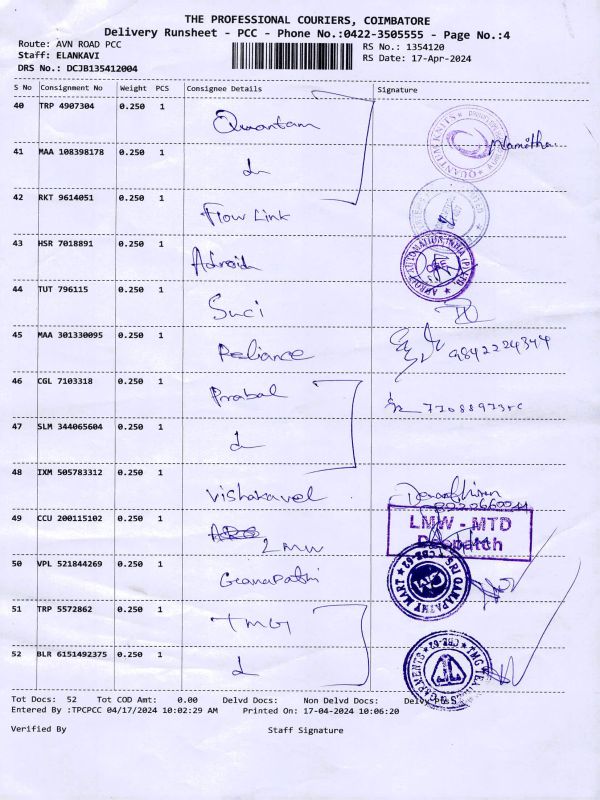 THE PROFESSIONAL COURIERS, COIMBATORE
Delivery Runsheet - PCC - Phone No.:0422-3505555 - Page No.:4
Route: AVN ROAD PCC
RS No.: 1354120
Staff: ELANKAVI
RS Date: 17-Apr-2024
DRS No.: DCJB135412004
S No Consignment No Weight PCS Consignee Details Signature
40 TRP 4907304 0.250 1 Quantam Namitha
41 MAA 108398178 0.250 1
42 RKT 9614051 0.250 1 Flow Link
43 HSR 7018891 0.250 1
44 TUT 796115 0.250 1 Suci
45 MAA 301330095 0.250 1 Reliance 9842224344
46 CGL 7103318 0.250 1 Prabal
47 SLM 344065604 0.250 1
48 IXM 505783312 0.250 1 Vishakavel
49 CCU 200115102 0.250 1 LMW
LMW - MTD
Despatch
50 VPL 521844269 0.250 1 Ganapathi
SRI GANAPATHY MART ★ CBE-62 ★
51 TRP 5572862 0.250 1 TMG
52 BLR 6151492375 0.250 1
Tot Docs: 52 Tot COD Amt: 0.00 Delvd Docs: Non Delvd Docs:
Entered By :TPCPCC 04/17/2024 10:02:29 AM Printed On: 17-04-2024 10:06:20
Verified By Staff Signature